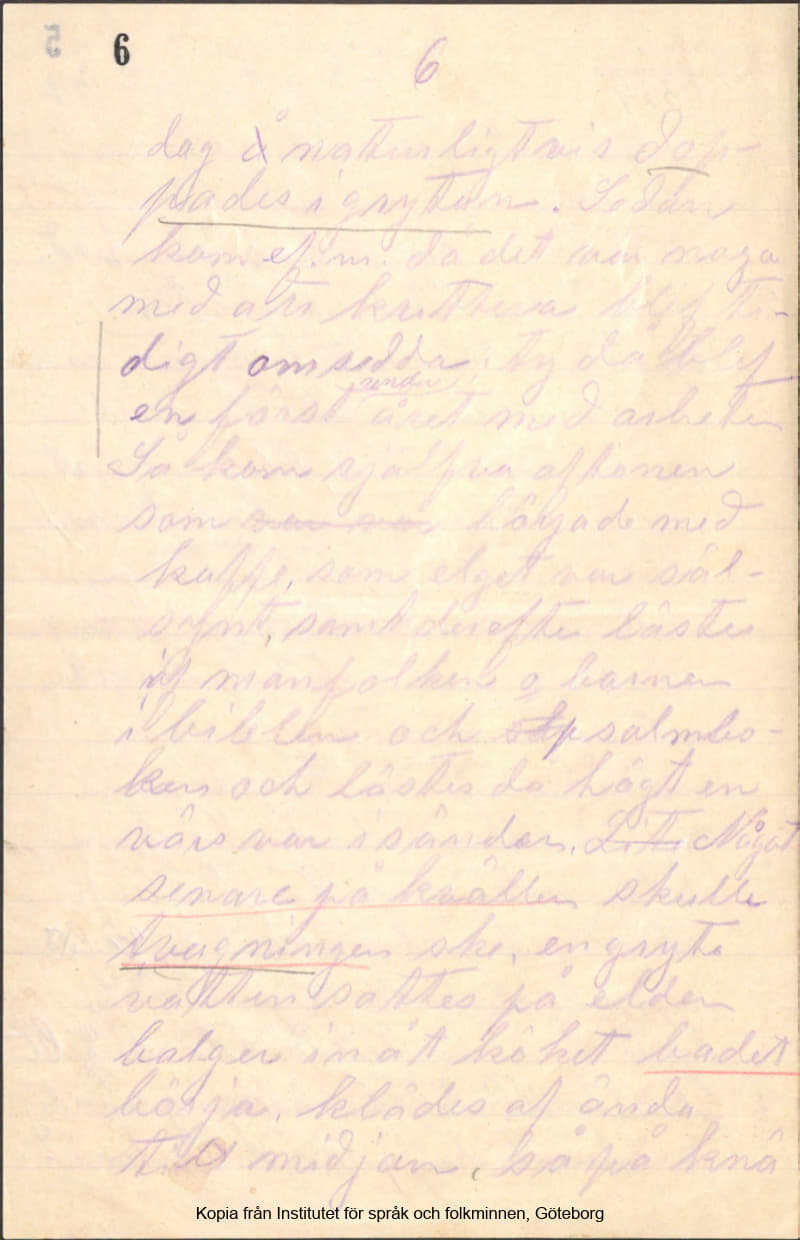 6
6
dag å naturligtvis dop-
pades i grytan. Sedan
kom ef.m. då det var noga
med att kritteren blef ti-
digt omsedda, ty då blef
en först under året med arbeten
Så kom sjelfva aftonen
som började med
kaffe, som elget var säl-
synt, samt derefter lästes
af manfolken o barnen
i bibeln och psalmbo-
ken och lästes då högt en
värs var i sänder. Något
senare på kvällen skulle
tvagningen ske, en gryta
vatten sattes på elden
balger in åt köket badet
börja, klädes af ända
till midjan, så på knä
Kopia från Institutet för språk och folkminnen, Göteborg